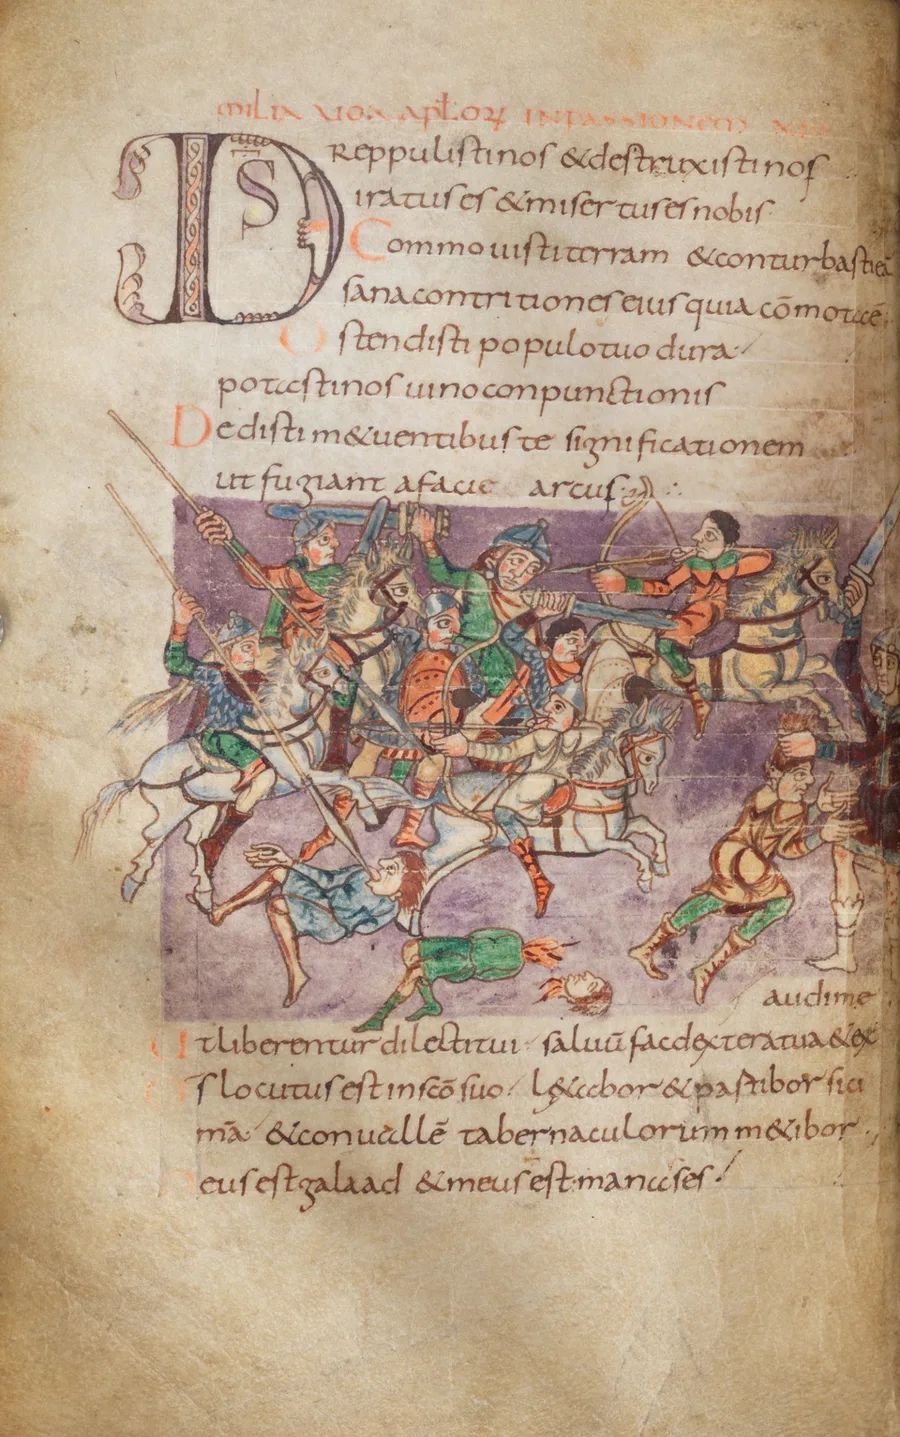 milia uox aptłorꝝ in passionem xpi
DS reppulisti nos & destruxisti nos
iratus es & misertus es nobis
Commouisti terram & conturbasti eā
sana contritiones eius quia cōmota ē
Ostendisti populo tuo dura
potasti nos uino conpunctionis
Dedisti m&uentibus te significationem
ut fugiant a facie arcus
audi me
Ut liberentur dilecti tui saluū fac dextera tua & ex
Ds locutus est in scō suo l&abor & partibor sici
mā & conuallē tabernaculorum m&ibor
Meus est galaad & meus est manases